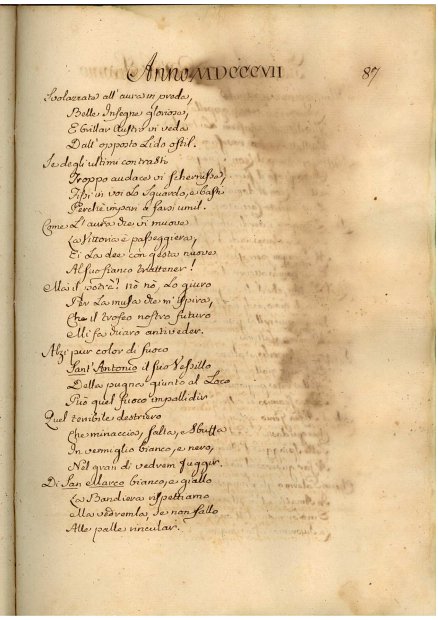 Anno MDCCCVII
87
Svolazzate all' aura in preda,
Belle Insegne gloriose,
E brillar Austro vi veda
Dall' opposto Lido ostil.
Se degli ultimi contrasti
Troppo audace vi schernisse,
Fisi in voi lo Sguardo, e basti
Perchè impari a farsi umil.
Come L' aura che vi muove
La Vittoria è passeggiera,
Ei La dee con gesta nuove
Al suo fianco trattener!
Ma il potrà? nò nò, Lo giuro
Per La musa che m' ispira,
Che il trofeo nostro futuro
Mi fa chiaro antiveder.
Alzi pur color di fuoco
Sant' Antonio il suo Vessillo
Della pugna giunto al Loco
Può quel fuoco impallidir
Quel terribile destriero
Che minaccia, salta, e Sbuffa
In vermiglio bianco, e nero,
Nel gran dì vedrem fuggir.
Di San Marco bianco, e giallo
La Bandiera rispettiamo
ella vedremla, se non fallo
Alle palle rincular.